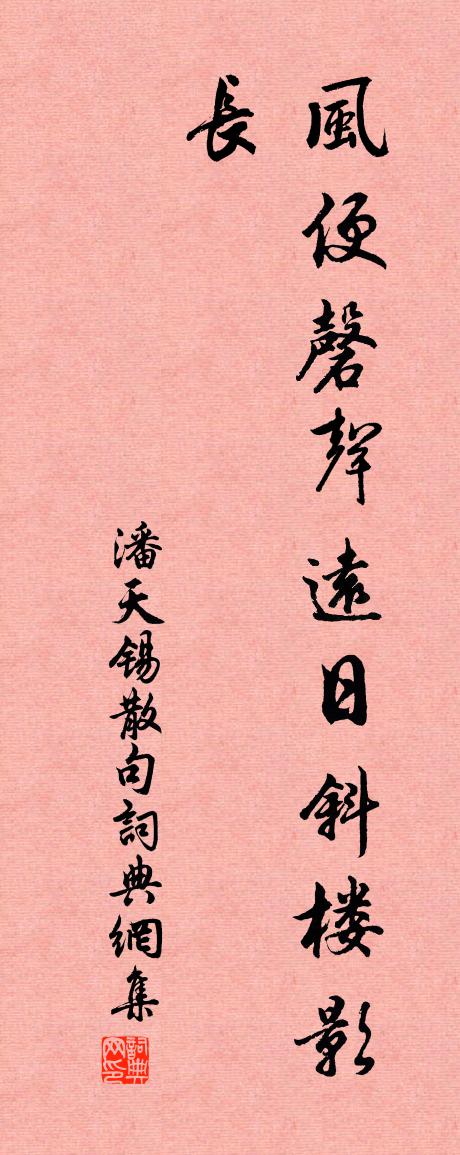 風便磬聲遠日斜楼影
長
潘天锡散句詞典網集
詞典网印